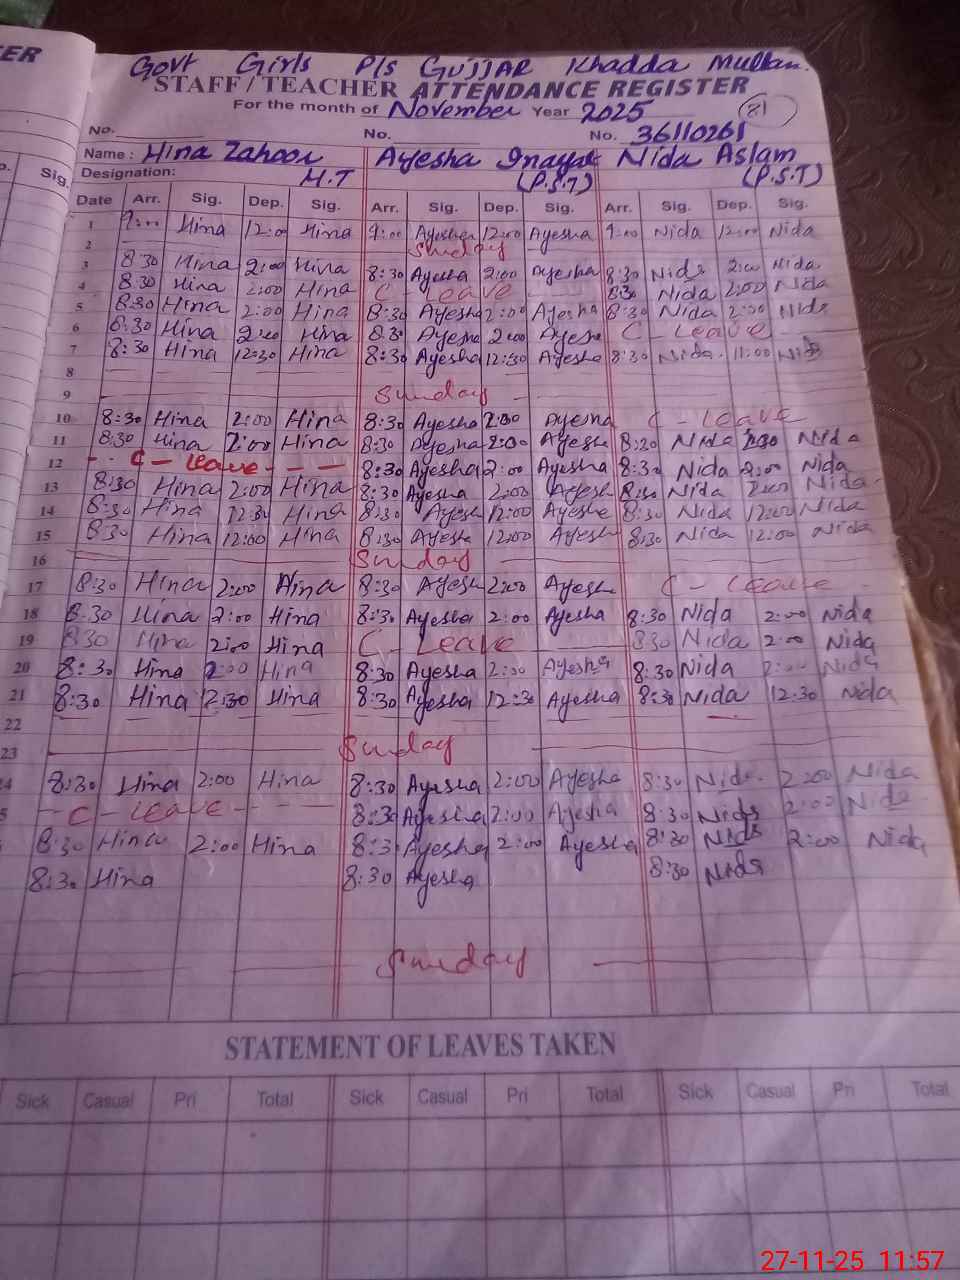 ER
Govt Girls P/s GUJJAR Khadda Multan.
STAFF / TEACHER ATTENDANCE REGISTER
For the month of November Year 2025 81
No. No. No. 36110261
Name : Hina Zahoor Ayesha Inayat Nida Aslam
Designation: H.T (P.S.T) (P.S.T)
Sig.
Date Arr. Sig. Dep. Sig. Arr. Sig. Dep. Sig. Arr. Sig. Dep. Sig.
1 9:00 Hina 12:00 Hina 9:00 Ayesha 12:00 Ayesha 9:00 Nida 12:00 Nida
2 Sunday
3 8:30 Hina 2:00 Hina 8:30 Ayesha 2:00 Ayesha 8:30 Nida 2:00 Nida
4 8:30 Hina 2:00 Hina C - Leave 8:30 Nida 2:00 Nida
5 8:30 Hina 2:00 Hina 8:30 Ayesha 2:00 Ayesha 8:30 Nida 2:00 Nida
6 8:30 Hina 2:00 Hina 8:30 Ayesha 2:00 Ayesha C - Leave
7 8:30 Hina 12:30 Hina 8:30 Ayesha 12:30 Ayesha 8:30 Nida 11:00 Nida
8
9 Sunday
10 8:30 Hina 2:00 Hina 8:30 Ayesha 2:00 Ayesha C - Leave
11 8:30 Hina 2:00 Hina 8:30 Ayesha 2:00 Ayeshe 8:20 Nida 2:00 Nida
12 C - Leave 8:30 Ayesha 2:00 Ayesha 8:30 Nida 2:00 Nida
13 8:30 Hina 2:00 Hina 8:30 Ayesha 2:00 Ayesh 8:30 Nida 2:00 Nida
14 8:30 Hina 12:30 Hina 8:30 Ayesh 12:00 Ayeshe 8:30 Nida 12:00 Nida
15 8:30 Hina 12:00 Hina 8:30 Ayesh 12:00 Ayeshe 8:30 Nida 12:00 Nida
16 Sunday
17 8:30 Hina 2:00 Hina 8:30 Ayesh 2:00 Ayesh C - Leave
18 8:30 Hina 2:00 Hina 8:30 Ayesha 2:00 Ayesha 8:30 Nida 2:00 Nida
19 8:30 Hina 2:00 Hina C - Leave 8:30 Nida 2:00 Nida
20 8:30 Hina 2:00 Hina 8:30 Ayesha 2:00 Ayesha 8:30 Nida 2:00 Nida
21 8:30 Hina 12:30 Hina 8:30 Ayesha 12:30 Ayesha 8:30 Nida 12:30 Nida
22
23 Sunday
4 8:30 Hina 2:00 Hina 8:30 Ayesha 2:00 Ayesha 8:30 Nida 2:00 Nida
5 C - Leave 8:30 Ayesha 2:00 Ayesha 8:30 Nida 2:00 Nida
8:30 Hina 2:00 Hina 8:3 Ayesha 2:00 Ayesha 8:30 Nida 2:00 Nida
8:30 Hina 8:30 Ayesha 8:30 Nida
Sunday
STATEMENT OF LEAVES TAKEN
Sick Casual Pri Total Sick Casual Pri Total Sick Casual Pri Total
27-11-25 11:57